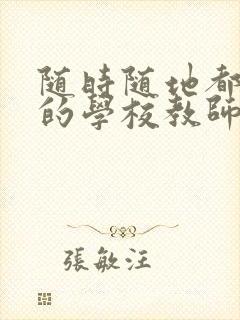 随時随地都
的學校教師
張敏汪